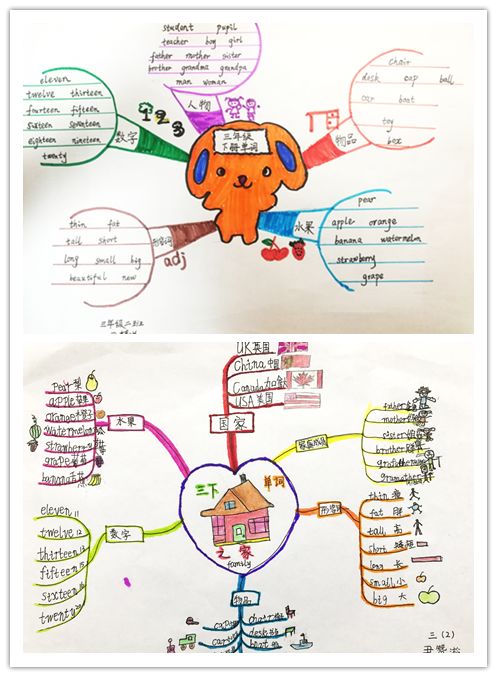 student pupil
teacher boy girl
father mother sister
brother grandma grandpa
man woman
人物
eleven
twelve thirteen
fourteen fifteen
sixteen seventeen
eighteen nineteen
twenty
数字
123
三年级
下册单词
chair
desk cap ball
car boat
toy
box
物品
thin fat
tall short
long small big
beautiful new
形容词
adj
pear
apple orange
banana watermelon
strawberry
grape
水果
三年级二班
UK英国
China中国
Canada加拿大
USA美国
国家
pear梨
apple苹果
orange
watermelon
strawberry
grape
banana
水果
father
mother
sister
brother
家庭成员
三下
单词
之家
family
eleven 11
twelve 12
thirteen 13
fifteen 15
sixteen
twenty 20
数字
thin 瘦
fat 胖
tall 高
short
long 长
small 小
big 大
形容词
物品
chair
desk
boat
三(2)